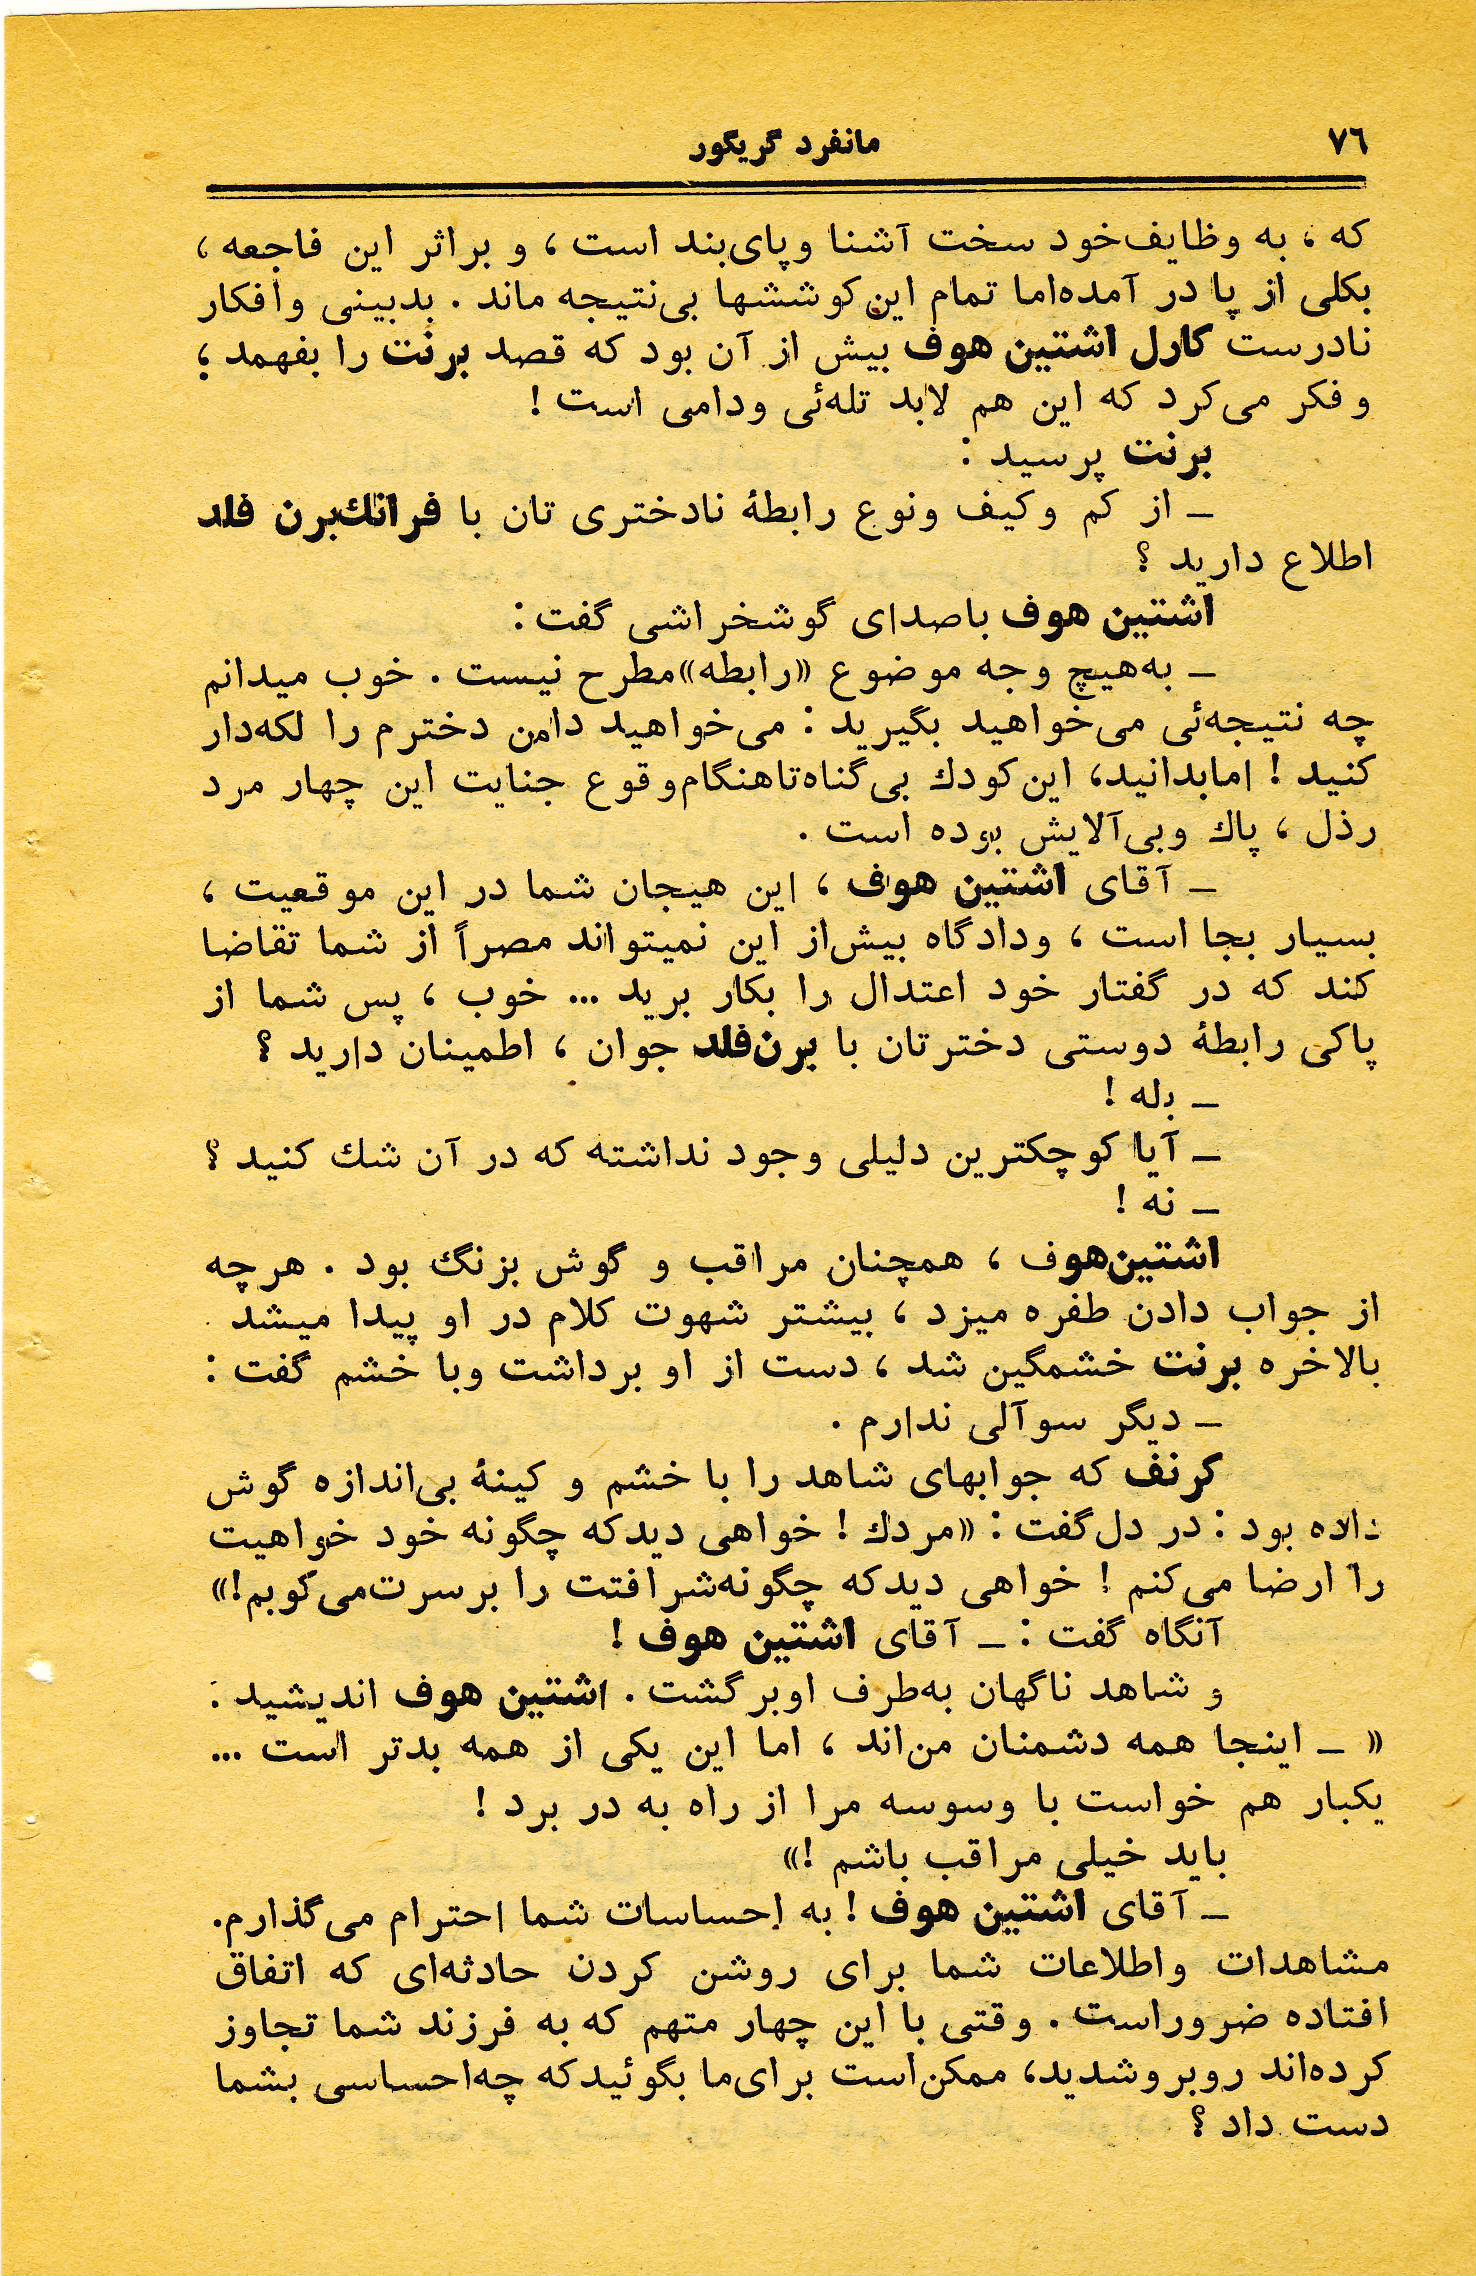 ۷۶
مانفرد گریگور
که ، به وظایف‌خود سخت آشنا وپای‌بند است ، و براثر این فاجعه ،
بکلی از پا در آمده‌اما تمام این‌کوششها بی‌نتیجه ماند . بدبینی وافکار
نادرست کارل اشتین هوف بیش از آن بود که قصد برنت را بفهمد ؛
و فکر می‌کرد که این هم لابد تله‌ئی ودامی است !
برنت پرسید :
ـ از کم وکیف ونوع رابطهٔ نادختری تان با فرانك‌برن فلد
اطلاع دارید ؟
اشتین هوف باصدای گوشخراشی گفت :
ـ به‌هیچ وجه موضوع «رابطه» مطرح نیست . خوب میدانم
چه نتیجه‌ئی می‌خواهید بگیرید : می‌خواهید دامن دخترم را لکه‌دار
کنید ! امابدانید، این‌کودك بی‌گناه‌تاهنگام‌وقوع جنایت این چهار مرد
رذل ، پاك وبی‌آلایش بوده است .
ـ آقای اشتین هوف ، این هیجان شما در این موقعیت ،
بسیار بجا است ، ودادگاه بیش‌از این نمیتواند مصراً از شما تقاضا
کند که در گفتار خود اعتدال را بکار برید ... خوب ، پس شما از
پاکی رابطهٔ دوستی دخترتان با برن‌فلد جوان ، اطمینان دارید ؟
ـ بله !
ـ آیا کوچکترین دلیلی وجود نداشته که در آن شك کنید ؟
ـ نه !
اشتین‌هوف ، همچنان مراقب و گوش بزنگ بود . هرچه
از جواب دادن طفره میزد ، بیشتر شهوت کلام در او پیدا میشد .
بالاخره برنت خشمگین شد ، دست از او برداشت وبا خشم گفت :
ـ دیگر سوآلی ندارم .
کرنف که جوابهای شاهد را با خشم و کینهٔ بی‌اندازه گوش
داده بود : در دل‌گفت : «مردك ! خواهی دیدکه چگونه خود خواهیت
را ارضا می‌کنم ! خواهی دیدکه چگونه‌شرافتت را برسرت‌می‌کوبم!»
آنگاه گفت : ـ آقای اشتین هوف !
و شاهد ناگهان به‌طرف اوبرگشت . اشتین هوف اندیشید :
« ـ اینجا همه دشمنان من‌اند ، اما این یکی از همه بدتر است ...
یکبار هم خواست با وسوسه مرا از راه به در برد !
باید خیلی مراقب باشم !»
ـ آقای اشتین هوف ! به احساسات شما احترام می‌گذارم.
مشاهدات واطلاعات شما برای روشن کردن حادثه‌ای که اتفاق
افتاده ضروراست . وقتی با این چهار متهم که به فرزند شما تجاوز
کرده‌اند روبروشدید، ممکن‌است برای‌ما بگوئیدکه چه‌احساسی بشما
دست داد ؟